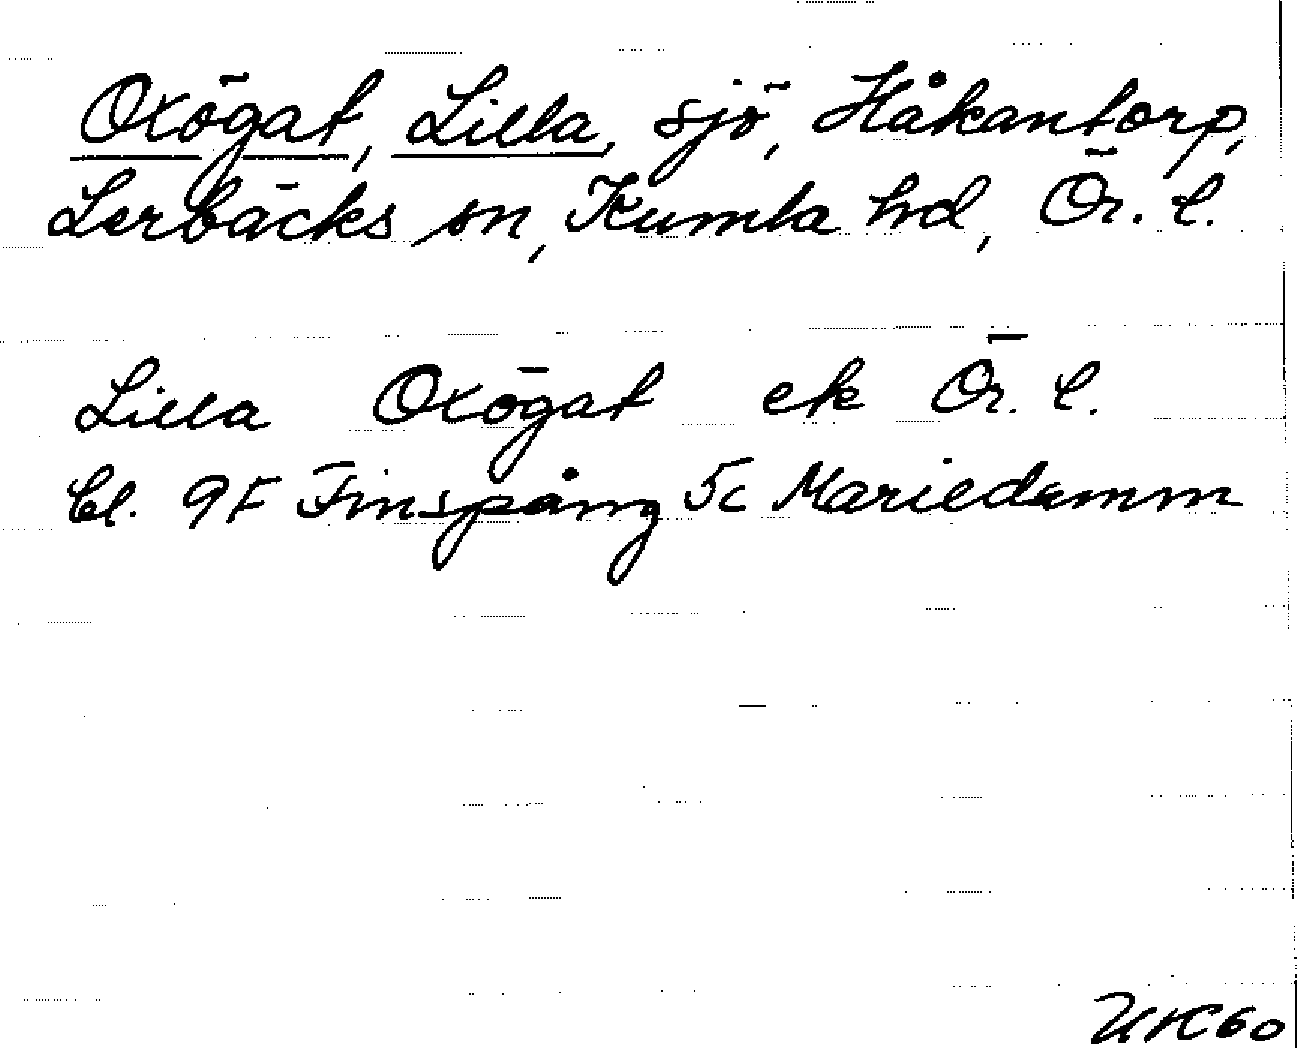 Oxögat, Lilla, sjö, Håkantorp,
Lerbäcks sn, Kumla hd, Ör. l.
Lilla Oxögat ek Ör. l.
bl. 9F Finspång 5c Mariedamm